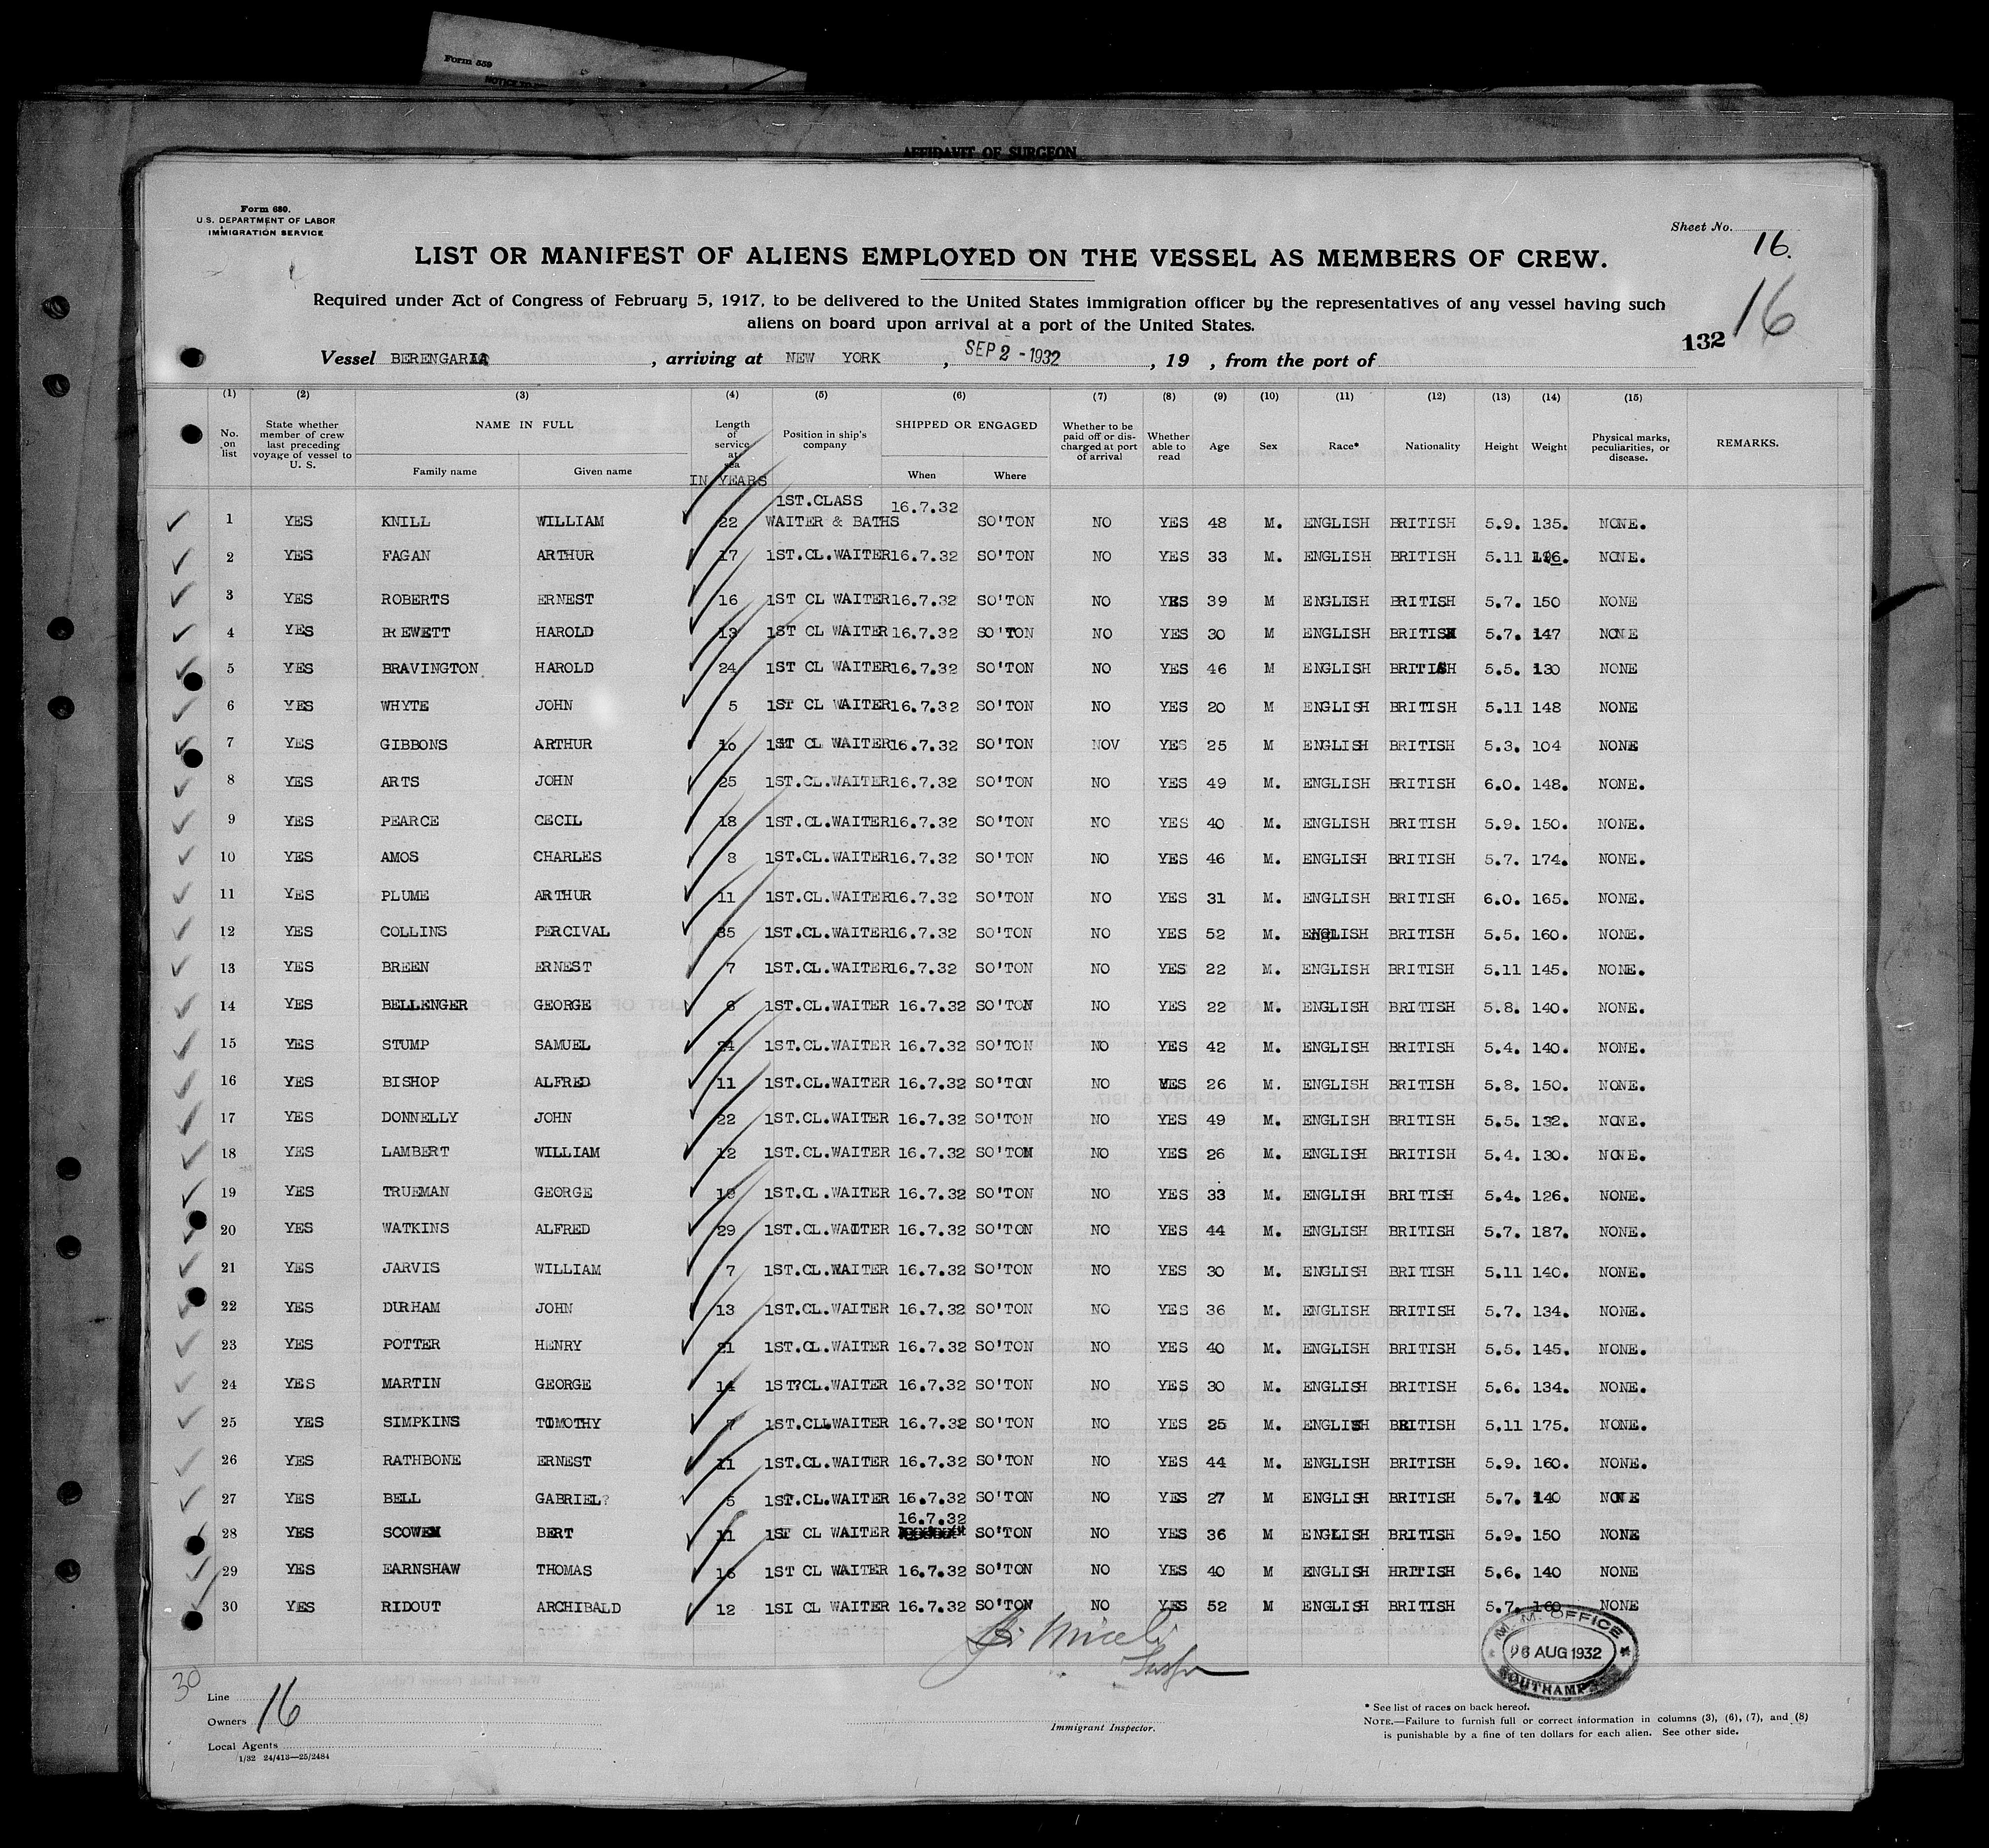 Form 559
AFFIDAVIT OF SURGEON
Form 680.
U.S. DEPARTMENT OF LABOR
IMMIGRATION SERVICE
Sheet No. 16.
LIST OR MANIFEST OF ALIENS EMPLOYED ON THE VESSEL AS MEMBERS OF CREW.
Required under Act of Congress of February 5, 1917, to be delivered to the United States immigration officer by the representatives of any vessel having such
aliens on board upon arrival at a port of the United States.
16
132
Vessel BERENGARIA, arriving at NEW YORK, SEP 2 - 1932, 19 , from the port of
(1) (2) (3) (4) (5) (6) (7) (8) (9) (10) (11) (12) (13) (14) (15)
No. on list State whether member of crew last preceding voyage of vessel to U. S. NAME IN FULL Family name Given name Length of service at sea IN YEARS Position in ship's company SHIPPED OR ENGAGED When Where Whether to be paid off or discharged at port of arrival Whether able to read Age Sex Race* Nationality Height Weight Physical marks, peculiarities, or disease. REMARKS.
1 YES KNILL WILLIAM 22 1ST.CLASS WAITER & BATHS 16.7.32 SO'TON NO YES 48 M. ENGLISH BRITISH 5.9. 135. NONE.
2 YES FAGAN ARTHUR 17 1ST.CL.WAITER 16.7.32 SO'TON NO YES 33 M. ENGLISH BRITISH 5.11 NONE.
3 YES ROBERTS ERNEST 16 1ST CL WAITER 16.7.32 SO'TON NO YES 39 M ENGLISH BRITISH 5.7. 150 NONE
4 YES HAROLD 13 1ST CL WAITER 16.7.32 SO'TON NO YES 30 M ENGLISH BRITISH 5.7. 147 NONE
5 YES BRAVINGTON HAROLD 24 1ST CL WAITER 16.7.32 SO'TON NO YES 46 M ENGLISH BRITISH 5.5. 130 NONE
6 YES WHYTE JOHN 5 1ST CL WAITER 16.7.32 SO'TON NO YES 20 M ENGLISH BRITISH 5.11 148 NONE
7 YES GIBBONS ARTHUR 10 1ST CL WAITER 16.7.32 SO'TON NOV YES 25 M ENGLISH BRITISH 5.3. 104 NONE
8 YES ARTS JOHN 25 1ST.CL.WAITER 16.7.32 SO'TON NO YES 49 M. ENGLISH BRITISH 6.0. 148. NONE.
9 YES PEARCE CECIL 18 1ST.CL.WAITER 16.7.32 SO'TON NO YES 40 M. ENGLISH BRITISH 5.9. 150. NONE.
10 YES AMOS CHARLES 8 1ST.CL.WAITER 16.7.32 SO'TON NO YES 46 M. ENGLISH BRITISH 5.7. 174. NONE.
11 YES PLUME ARTHUR 11 1ST.CL.WAITER 16.7.32 SO'TON NO YES 31 M. ENGLISH BRITISH 6.0. 165. NONE.
12 YES COLLINS PERCIVAL 35 1ST.CL.WAITER 16.7.32 SO'TON NO YES 52 M. ENGLISH BRITISH 5.5. 160. NONE.
13 YES BREEN ERNEST 7 1ST.CL.WAITER 16.7.32 SO'TON NO YES 22 M. ENGLISH BRITISH 5.11 145. NONE.
14 YES BELLENGER GEORGE 1ST.CL.WAITER 16.7.32 SO'TON NO YES 22 M. ENGLISH BRITISH 5.8. 140. NONE.
15 YES STUMP SAMUEL 24 1ST.CL.WAITER 16.7.32 SO'TON NO YES 42 M. ENGLISH BRITISH 5.4. 140. NONE.
16 YES BISHOP ALFRED 11 1ST.CL.WAITER 16.7.32 SO'TON NO YES 26 M. ENGLISH BRITISH 5.8. 150. NONE.
17 YES DONNELLY JOHN 22 1ST.CL.WAITER 16.7.32 SO'TON NO YES 49 M. ENGLISH BRITISH 5.5. 132. NONE.
18 YES LAMBERT WILLIAM 12 1ST.CL.WAITER 16.7.32 SO'TON NO YES 26 M. ENGLISH BRITISH 5.4. 130. NONE.
19 YES TRUEMAN GEORGE 1ST.CL.WAITER 16.7.32 SO'TON NO YES 33 M. ENGLISH BRITISH 5.4. 126. NONE.
20 YES WATKINS ALFRED 29 1ST.CL.WAITER 16.7.32 SO'TON NO YES 44 M. ENGLISH BRITISH 5.7. 187. NONE.
21 YES JARVIS WILLIAM 7 1ST.CL.WAITER 16.7.32 SO'TON NO YES 30 M. ENGLISH BRITISH 5.11 140. NONE.
22 YES DURHAM JOHN 13 1ST.CL.WAITER 16.7.32 SO'TON NO YES 36 M. ENGLISH BRITISH 5.7. 134. NONE.
23 YES POTTER HENRY 21 1ST.CL.WAITER 16.7.32 SO'TON NO YES 40 M. ENGLISH BRITISH 5.5. 145. NONE.
24 YES MARTIN GEORGE 14 1ST?CL.WAITER 16.7.32 SO'TON NO YES 30 M. ENGLISH BRITISH 5.6. 134. NONE.
25 YES SIMPKINS TIMOTHY 7 1ST.CLLWAITER 16.7.32 SO'TON NO YES 25 M. ENGLISH BRITISH 5.11 175. NONE.
26 YES RATHBONE ERNEST 11 1ST.CL.WAITER 16.7.32 SO'TON NO YES 44 M. ENGLISH BRITISH 5.9. 160. NONE.
27 YES BELL GABRIEL? 5 1ST.CL.WAITER 16.7.32 SO'TON NO YES 27 M ENGLISH BRITISH 5.7. 140 NONE
28 YES SCOWEN BERT 11 1ST CL WAITER 16.7.32 SO'TON NO YES 36 M ENGLISH BRITISH 5.9. 150 NONE
29 YES EARNSHAW THOMAS 16 1ST CL WAITER 16.7.32 SO'TON NO YES 40 M ENGLISH HRITISH 5.6. 140 NONE
30 YES RIDOUT ARCHIBALD 12 1SI CL WAITER 16.7.32 SO'TON NO YES 52 M ENGLISH BRITISH 5.7. 160 NONE
M. M. OFFICE
26 AUG 1932
SOUTHAMPTON
30
Line
Owners 16
Local Agents
1/32 24/413—25/2484
Immigrant Inspector.
* See list of races on back hereof.
NOTE.—Failure to furnish full or correct information in columns (3), (6), (7), and (8)
is punishable by a fine of ten dollars for each alien. See other side.